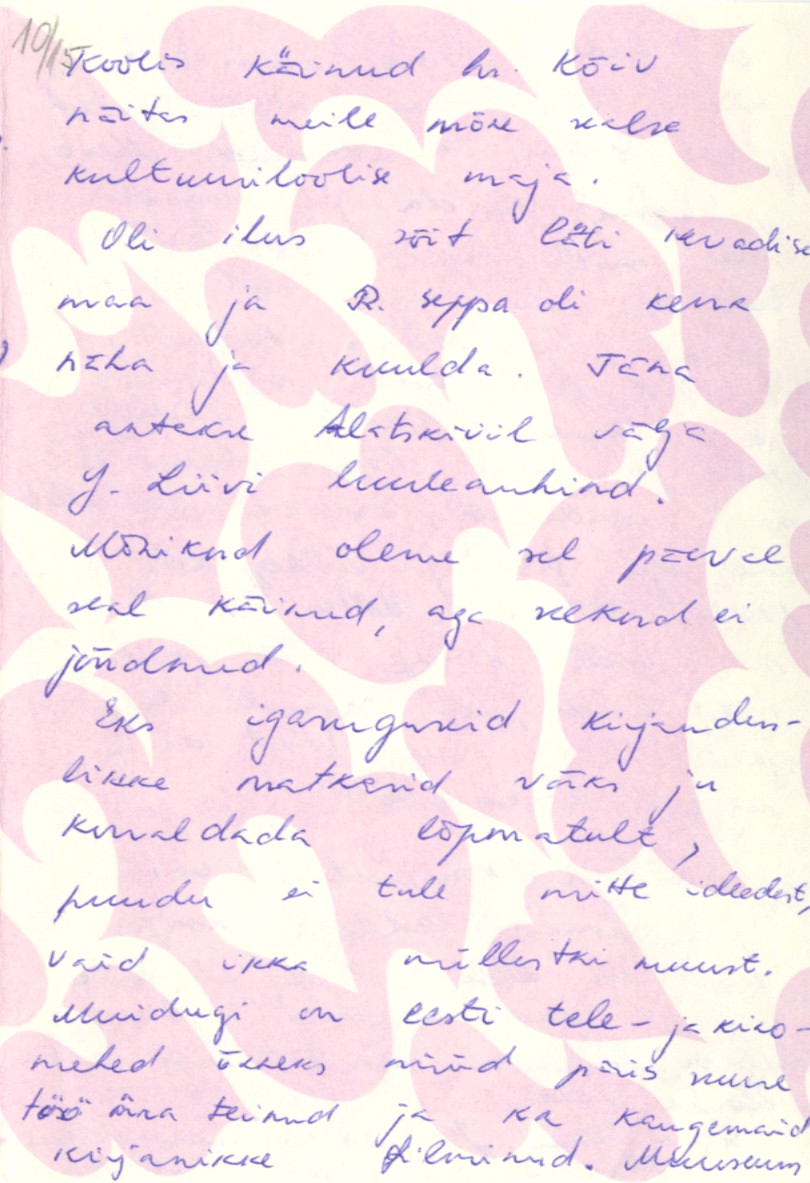 10/15
Koolis käinud hr. Kõiv
näitas meile mõne sealse
kultuuriloolise maja.
Oli ilus sõit läbi kevadise
maa ja R. Seppa oli kena
näha ja kuulda. Täna
antakse Alatskivil välja
J. Liivi luuleauhind.
Mõnikord oleme sel päeval
seal käinud, aga seekord ei
jõudnud.
Eks igasuguseid kirjandus-
likke matkasid võiks ju
korraldada lõpmatult,
puudu ei tule mitte ideedest,
vaid ikka millestki muust.
Muidugi on eesti tele- ja kino-
mehed õnneks nüüd päris suure
töö ära teinud ja ka kaugemaid
kirjanikke filminud. Muuseum